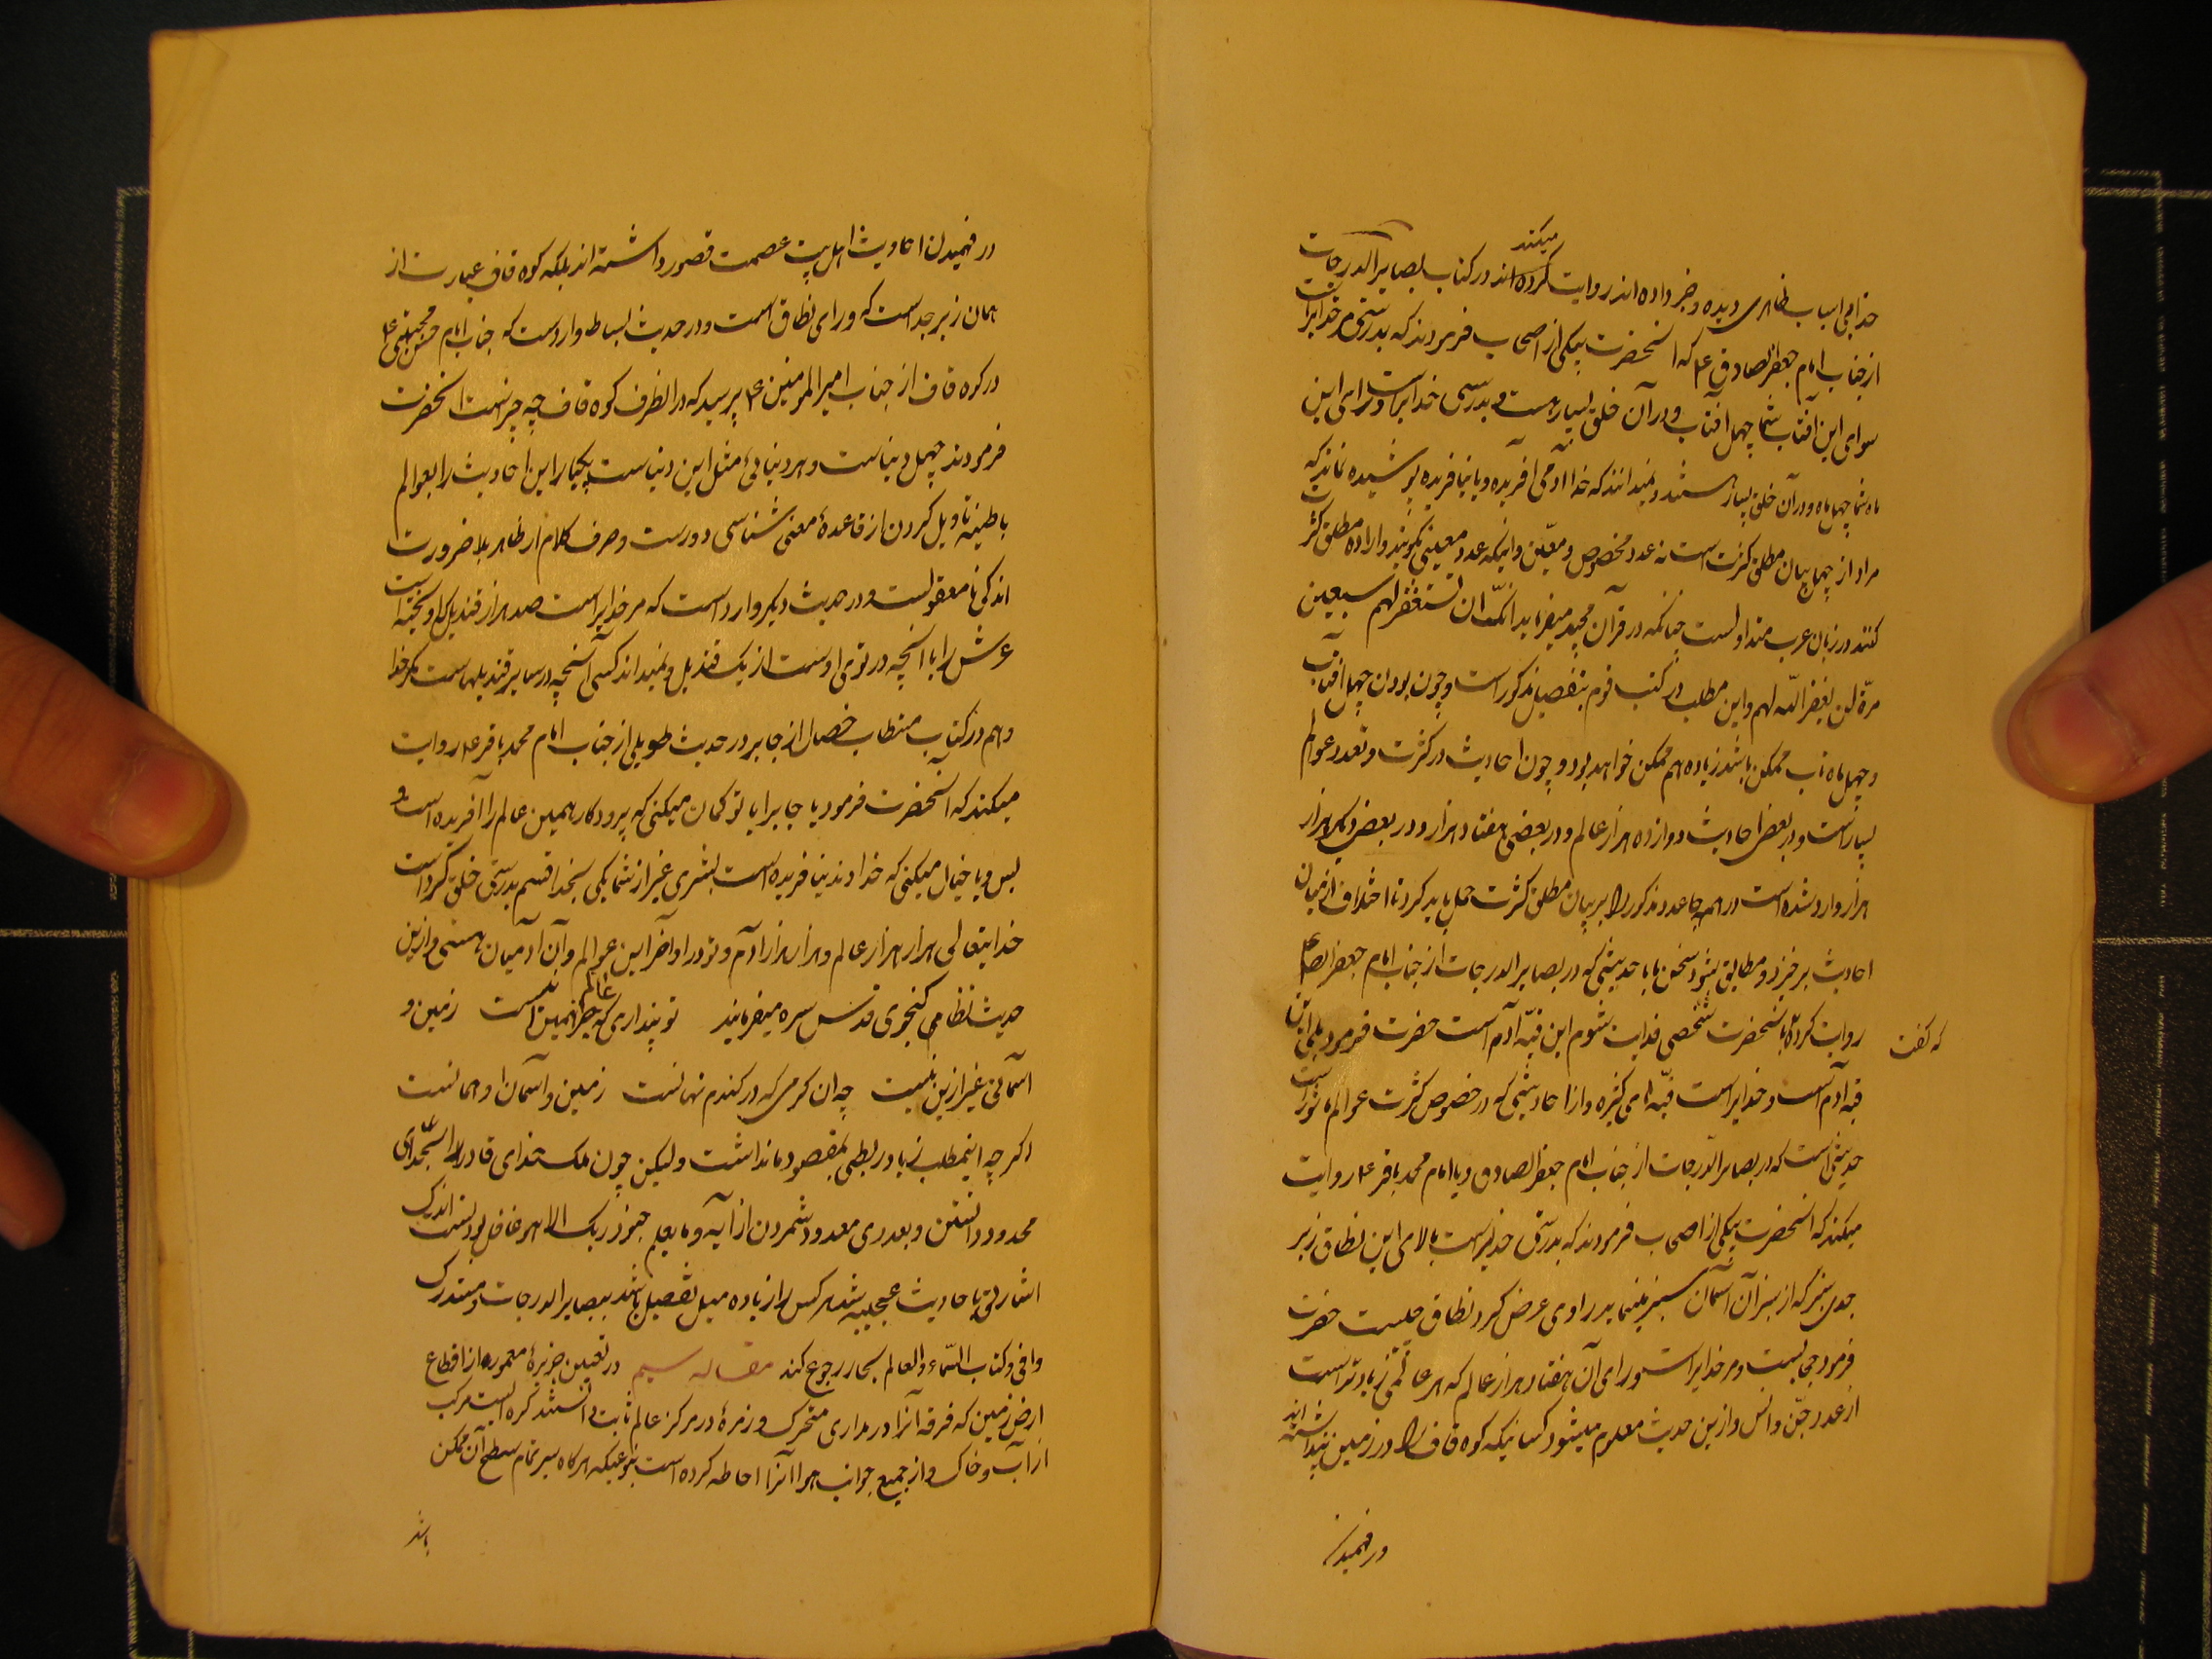 میکند
خدا بی اسباب ظاهری دیده و خبر داده‌اند روایت کرده‌اند در کتاب بصایر الدرجات
از جناب امام جعفر الصادق ع که آنحضرت بیکی از اصحاب فرمودند که بدرستی مر خدایراست
سوای این آفتاب شما چهل آفتاب و در آن خلق بسیار هست و بدرستی خدایراست ورای این
ماه شما چهل ماه و در آن خلق بسیار هستند و نمیدانند که خدا آدمی آفریده و یا نیافریده پوشیده نماند که
مراد از چهل بیان مطلق کثرت است نه عدد مخصوص و معین و اینکه عدد معینی بگویند و اراده مطلق کثرت
کنند در زبان عرب متداولست چنانکه در قرآن مجید میفرماید انک ان تستغفر لهم سبعین
مرّة لن یغفر اللّه لهم و این مطلب در کتب قوم بتفصیل مذکور است و چون بودن چهل آفتاب
و چهل ماهتاب ممکن باشد زیاده هم ممکن خواهد بود و چون احادیث در کثرت و تعدد عوالم
بسیار است و در بعض احادیث دوازده هزار عالم و در بعضی هفتاد هزار و در بعض دیگر هزار
هزار وارد شده است در همه جا عدد مذکور را بر بیان مطلق کثرت حمل باید کرد تا اختلاف از میان
احادیث برخیزد و مطابق شود سخن ما با حدیثی که در بصایر الدرجات از جناب امام جعفر الصادق ع
روایت کرده بآنحضرت شخصی فدایت شوم این قبّه آدم است حضرت فرمود بلی این
که گفت
قبه آدم است و خدایراست قبّه‌های کثیره و از احادیثی که در خصوص کثرت عوالم ماثور است
حدیثی است که در بصایر الدّرجات از جناب امام جعفر الصادق و یا امام محمد باقر ع روایت
میکند که آنحضرت بیکی از اصحاب فرمودند که بدرستی خدایراست بالای این نطاق زبر
جدی سبز که از سبزی آن آسمان سبز مینماید راوی عرض کرد نطاق چیست حضرت
فرمود حجابست و مر خدایراست ورای آن هفتاد هزار عالم که هر عالمی زیادتر است
از عدد جنّ و انس و ازین حدیث معلوم میشود کسانیکه کوه قاف را در زمین پنداشته‌اند
در فهمیدن
در فهمیدن احادیث اهل بیت عصمت قصور داشته‌اند بلکه کوه قاف عبارت از
همان زبرجد است که ورای نطاق است و در حدیث بساط وارد است که جناب امام حسن مجتبی ع
در کوه قاف از جناب امیرالمومنین ع پرسید که در انطرف کوه قاف چه چیز است آنحضرت
فرمودند چهل دنیاست و هر دنیائی مثل این دنیاست یکبار این احادیث را بعوالم
باطنیه تاویل کردن از قاعده معنی شناسی دور است و صرف کلام از ظاهر بلا ضرورت
اندکی نامعقولست و در حدیث دیگر وارد است که مر خدایراست صد هزار قندیل آویخته است
عرش را با آنچه در توی اوست از یک قندیل و نمیداند کسی آنچه در سایر قندیلهاست مگر خدا
و هم در کتاب مستطاب خصال از جابر در حدیث طویلی از جناب امام محمد باقر ع روایت
میکند که آنحضرت فرمود یا جابر آیا تو گمان میکنی که پروردگار همین عالم را آفریده است و
بس و یا خیال میکنی که خداوند نیافریده است بشری غیر از شما بلی بخدا قسم بدرستی خلق کرده است
خدایتعالی هزار هزار عالم و هزار هزار آدم و تو در اواخر این عوالم و آن آدمیان هستی و ازین
حدیث نظامی گنجوی قدس سره میفرماید تو پنداری که عالم جز همین نیست زمین و
آسمانی غیر ازین نیست چو آن کرمی که در گندم نهانست زمین و آسمان او همانست
اگر چه اینمطلب زیاد ربطی بمقصود ما نداشت ولیکن چون ملک خدای قادر را بحدی
محدود دانستن و بعددی معدود شمردن از آیه و ما یعلم جنود ربک الا هو غافل بودنست اندک
اشارتی باحادیث عجیبه شد هر کس را زیاده میل تفصیل باشد ببصایر الدرجات و مستدرک
وافی و کتاب السّماء و العالم بحار رجوع کند مقاله سیم در تعیین جزیره معموره از اقطاع
ارض زمین که فرقه آنرا در مداری متحرک و زمره در مرکز عالم ثابت دانستند کره ایست مرکب
از آب و خاک و از جمیع جوانب هوا آنرا احاطه کرده است بنوعیکه هرگاه سیر تمام سطح آن ممکن
باشد